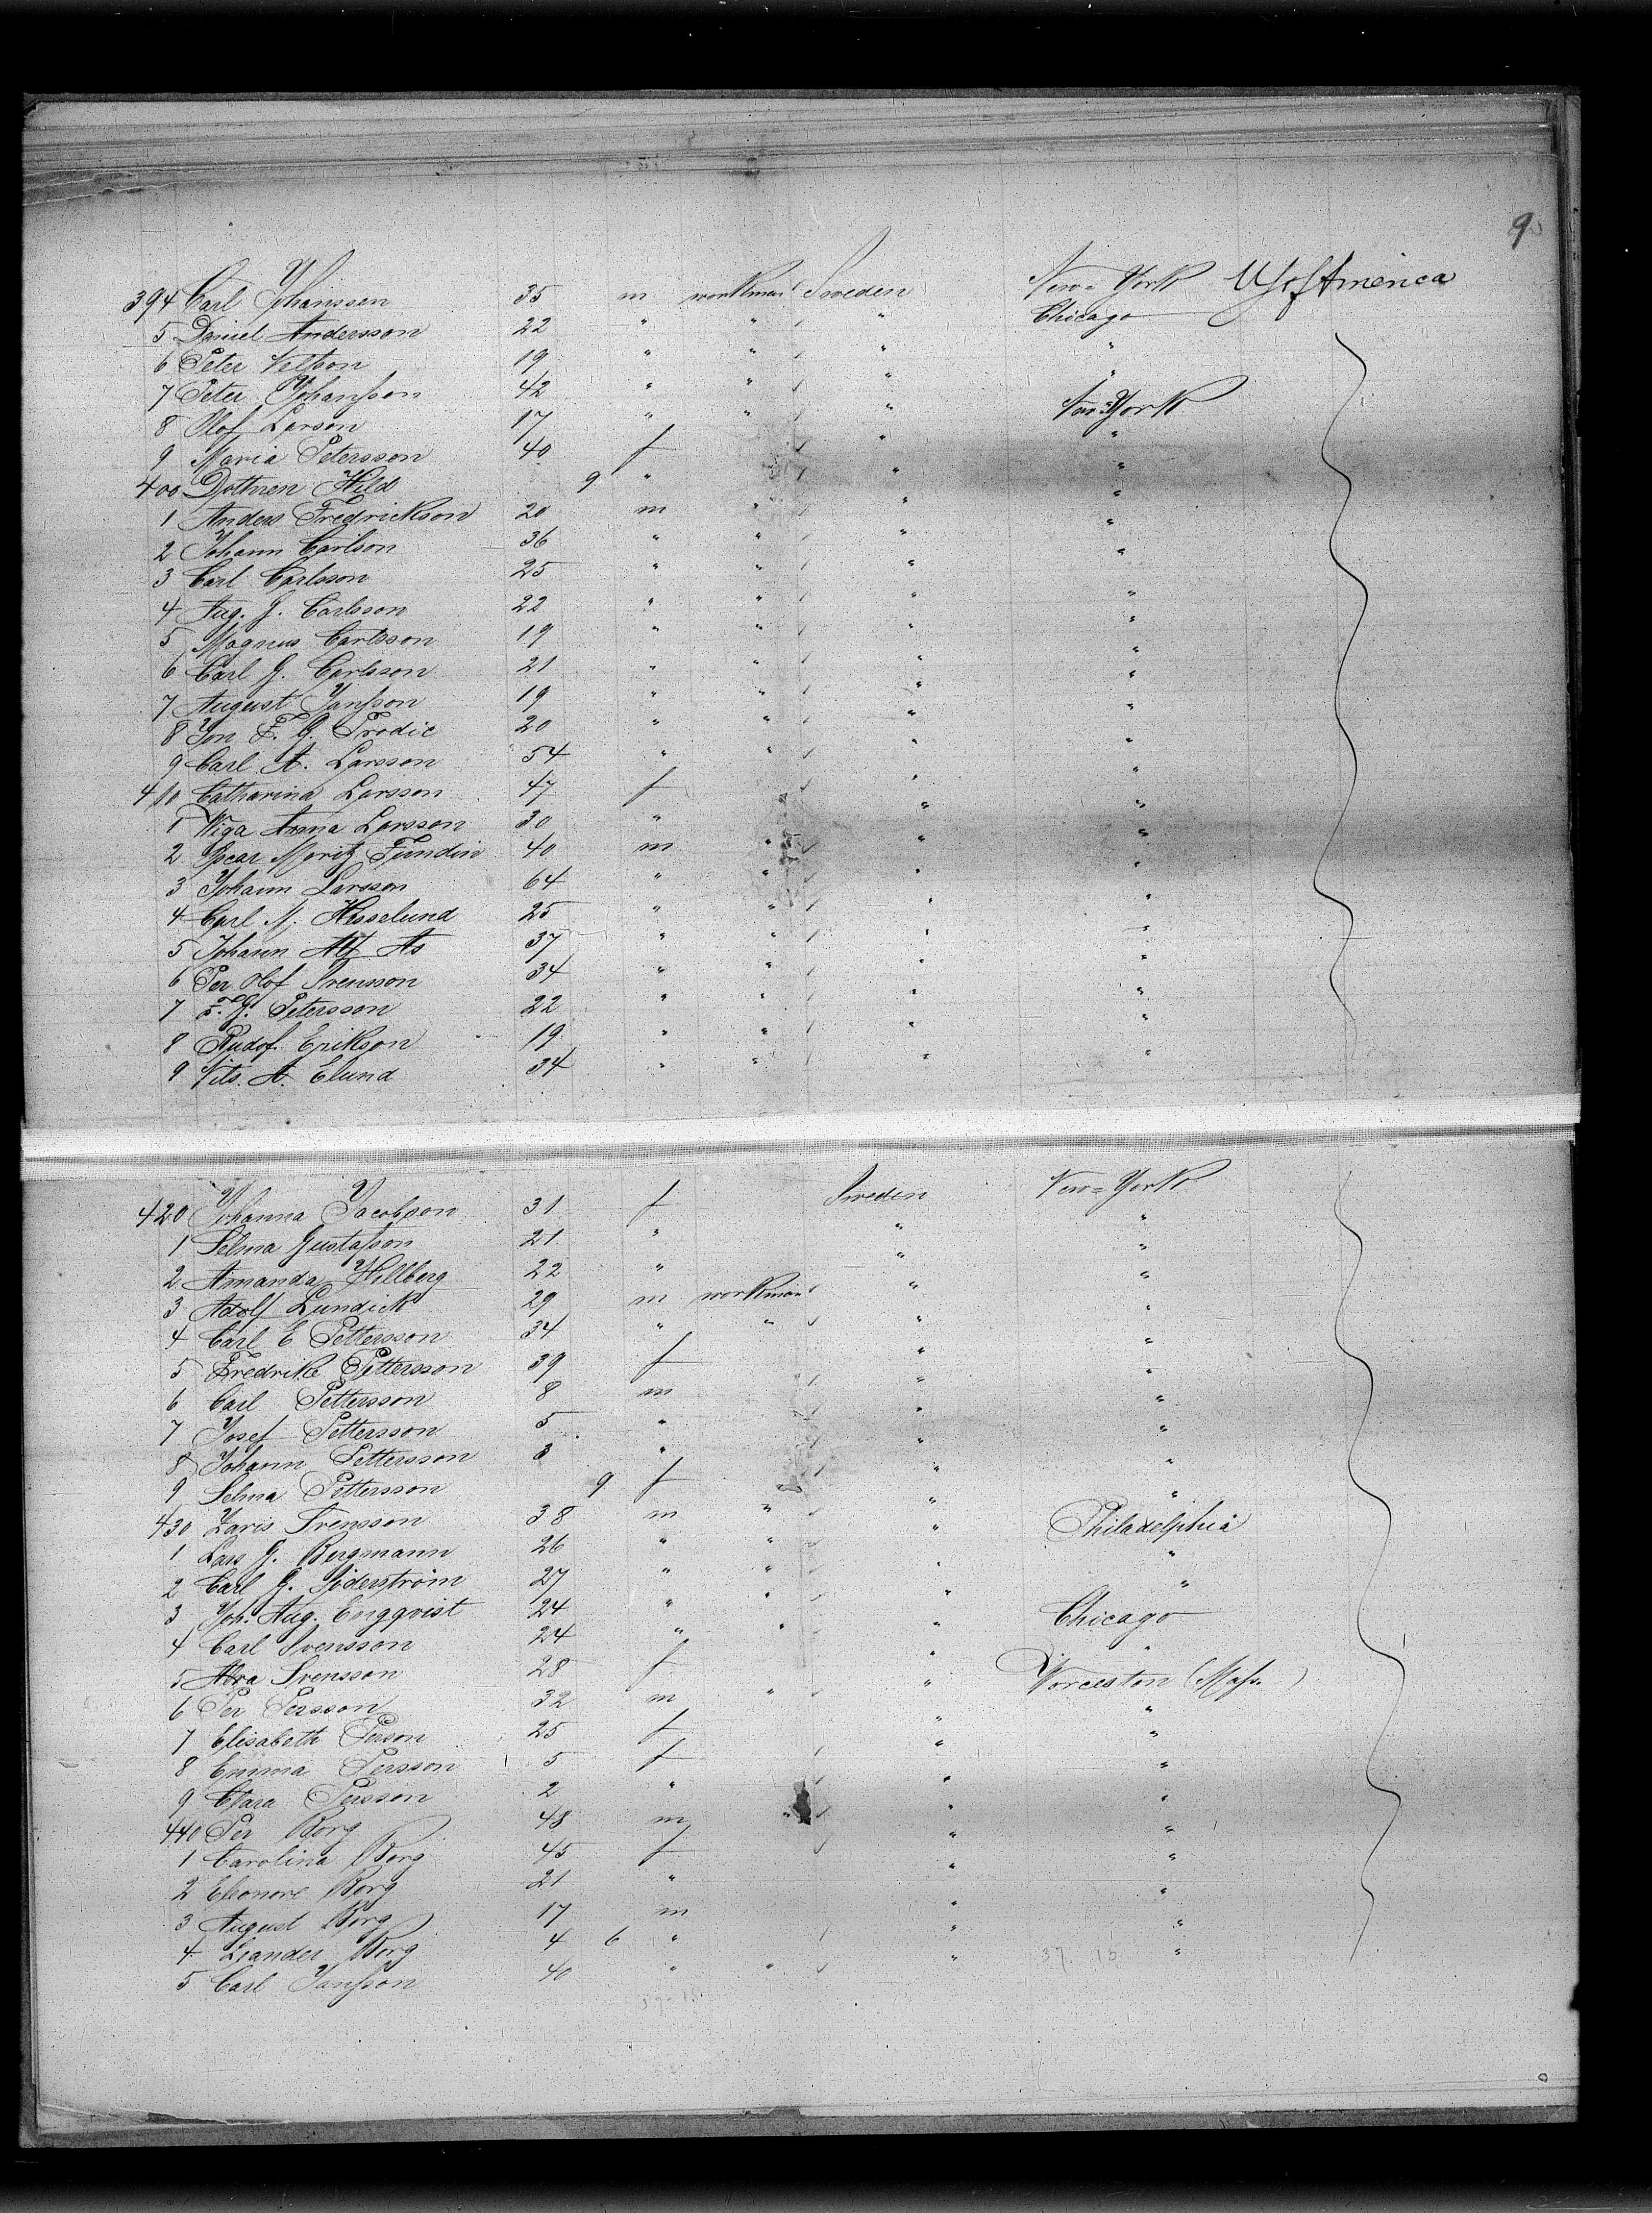 9
394 Carl Johanssen 35 m workman Sweden New-York US of America
5 Daniel Andersson 22 " " " Chicago
6 Peter 19 " " " "
7 Peter Johansson 42 " " " "
8 Olof Larson 17 " " " New-York
9 Maria Petersson 40 f " "
400 Hild 9 " " "
1 Anders Fredrickson 20 m " " "
2 Johann Carlson 36 " " " "
3 Carl Carlsson 25 " " " "
4 Aug. G. Carlsson 22 " " " "
5 Magnus Carlsson 19 " " " "
6 Carl G. Carlsson 21 " " " "
7 August Jansson 19 " " " "
8 Jon F. G. 20 " " " "
9 Carl A. Larsson 54 " " " "
410 Catharina Larsson 47 f " "
1 Anna Larsson 30 " " "
2 Moritz Fundin 40 m " " "
3 Johann Larsson 64 " " " "
4 Carl M. Hesselund 25 " " " "
5 Johann 37 " " " "
6 Per Olof Svensson 34 " " " "
7 F. G. Petersson 22 " " " "
8 Rudof Erikson 19 " " " "
9 Nils. A. Elund 34 " " " "
420 Johanna Jacobson 31 f Sweden New-York
1 Selma Gustafson 21 " " "
2 Amanda Hillberg 22 " " "
3 Adolf Lundick 29 m workman " "
4 Carl E Pettersson 34 " " " "
5 Fredrike Pettersson 39 f " "
6 Carl Pettersson 8 m " "
7 Josef Pettersson 5 " " "
8 Johann Pettersson 3 " " "
9 Selma Pettersson 9 f " "
430 Svensson 38 m " " Philadelphia
1 Lars G. Bergmann 26 " " " "
2 Carl G. Söderström 27 " " " "
3 Joh. Aug. Engqvist 24 " " " Chicago
4 Carl Svensson 24 " " " "
5 Svensson 28 f " Worceston (Mass.)
6 Per Persson 32 m " " "
7 Elisabeth Person 25 f " "
8 Emma Persson 5 f " "
9 Clara Persson 2 " " "
440 Per Borg 48 m " " "
1 Carolina Borg 45 f " "
2 Eleonore Borg 21 " " "
3 August Borg 17 m " "
4 Leander Borg 4 6 " " "
5 Carl Jansson 40 " " " "
37. 15